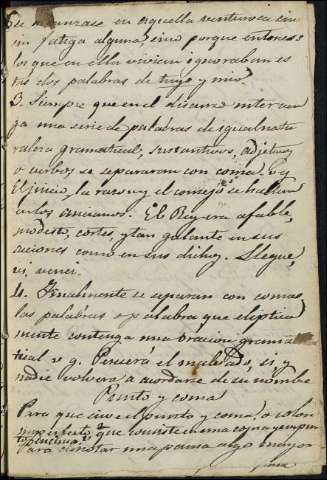 se alcanzase en aquella venturosa sin
in fatiga alguna, sino porque entonces
los que en ella vivian ignoraban es
tas dos palabras de tuyo y mio.
3. Siempre que en el discurso interven
ga una serie de palabras de igual natu
raleza gramatical, sustantivos, adjetivos
o verbos se separaran con coma. v. g
El juicio, la razon y el consejo se hallan
en los ancianos. El Rey era afable,
modesto, cortes, y tan galante en sus
acciones como en sus dichos. Llegue,
vi, venci.
4. Finalmente se separan con comas
las palabras o palabra que eliptica
mente contenga una oracion grama
tical v. g. Perecerá el malvado, si, y
nadie volverá a acordarse de su nombre
Punto y coma
Para que sirve el punto y coma, o colon
imperfecto que consiste en una coma y un pun
to encima?
Para denotar una pausa algo mayor